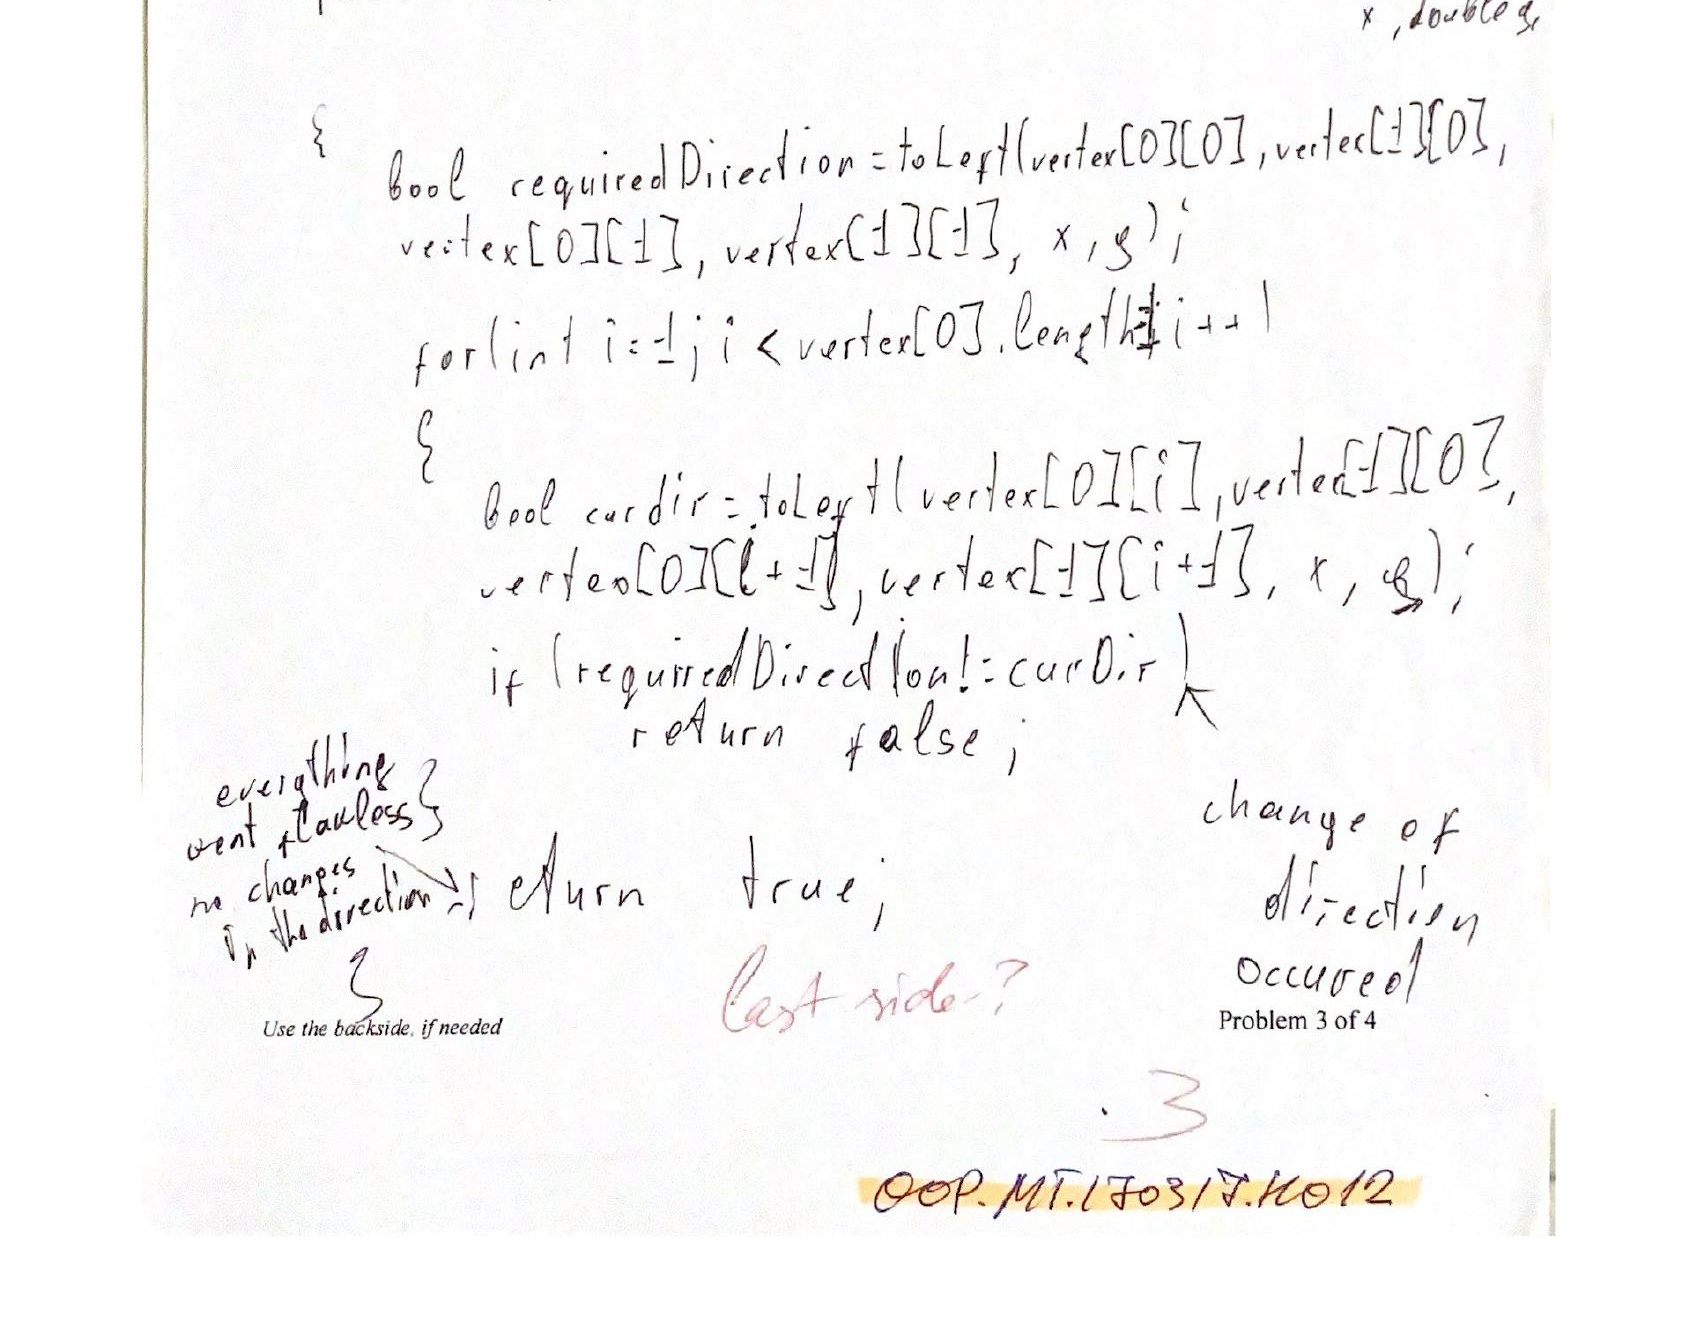 x , double y,
{
bool requiredDirection = toLeft(vertex[0][0], vertex[1][0],
vertex[0][1], vertex[1][1], x, y);
for(int i=1; i < vertex[0].length-1; i++)
{
bool curdir = toLeft(vertex[0][i], vertex[1][0],
vertex[0][i+1], vertex[1][i+1], x, y);
if (requiredDirection != curDir)
return false;
}
everything
went flawless
no changes
in the direction
return true;
}
change of
direction
occured
last side?
Use the backside, if needed
Problem 3 of 4
3
OOP.MT.170317.H012